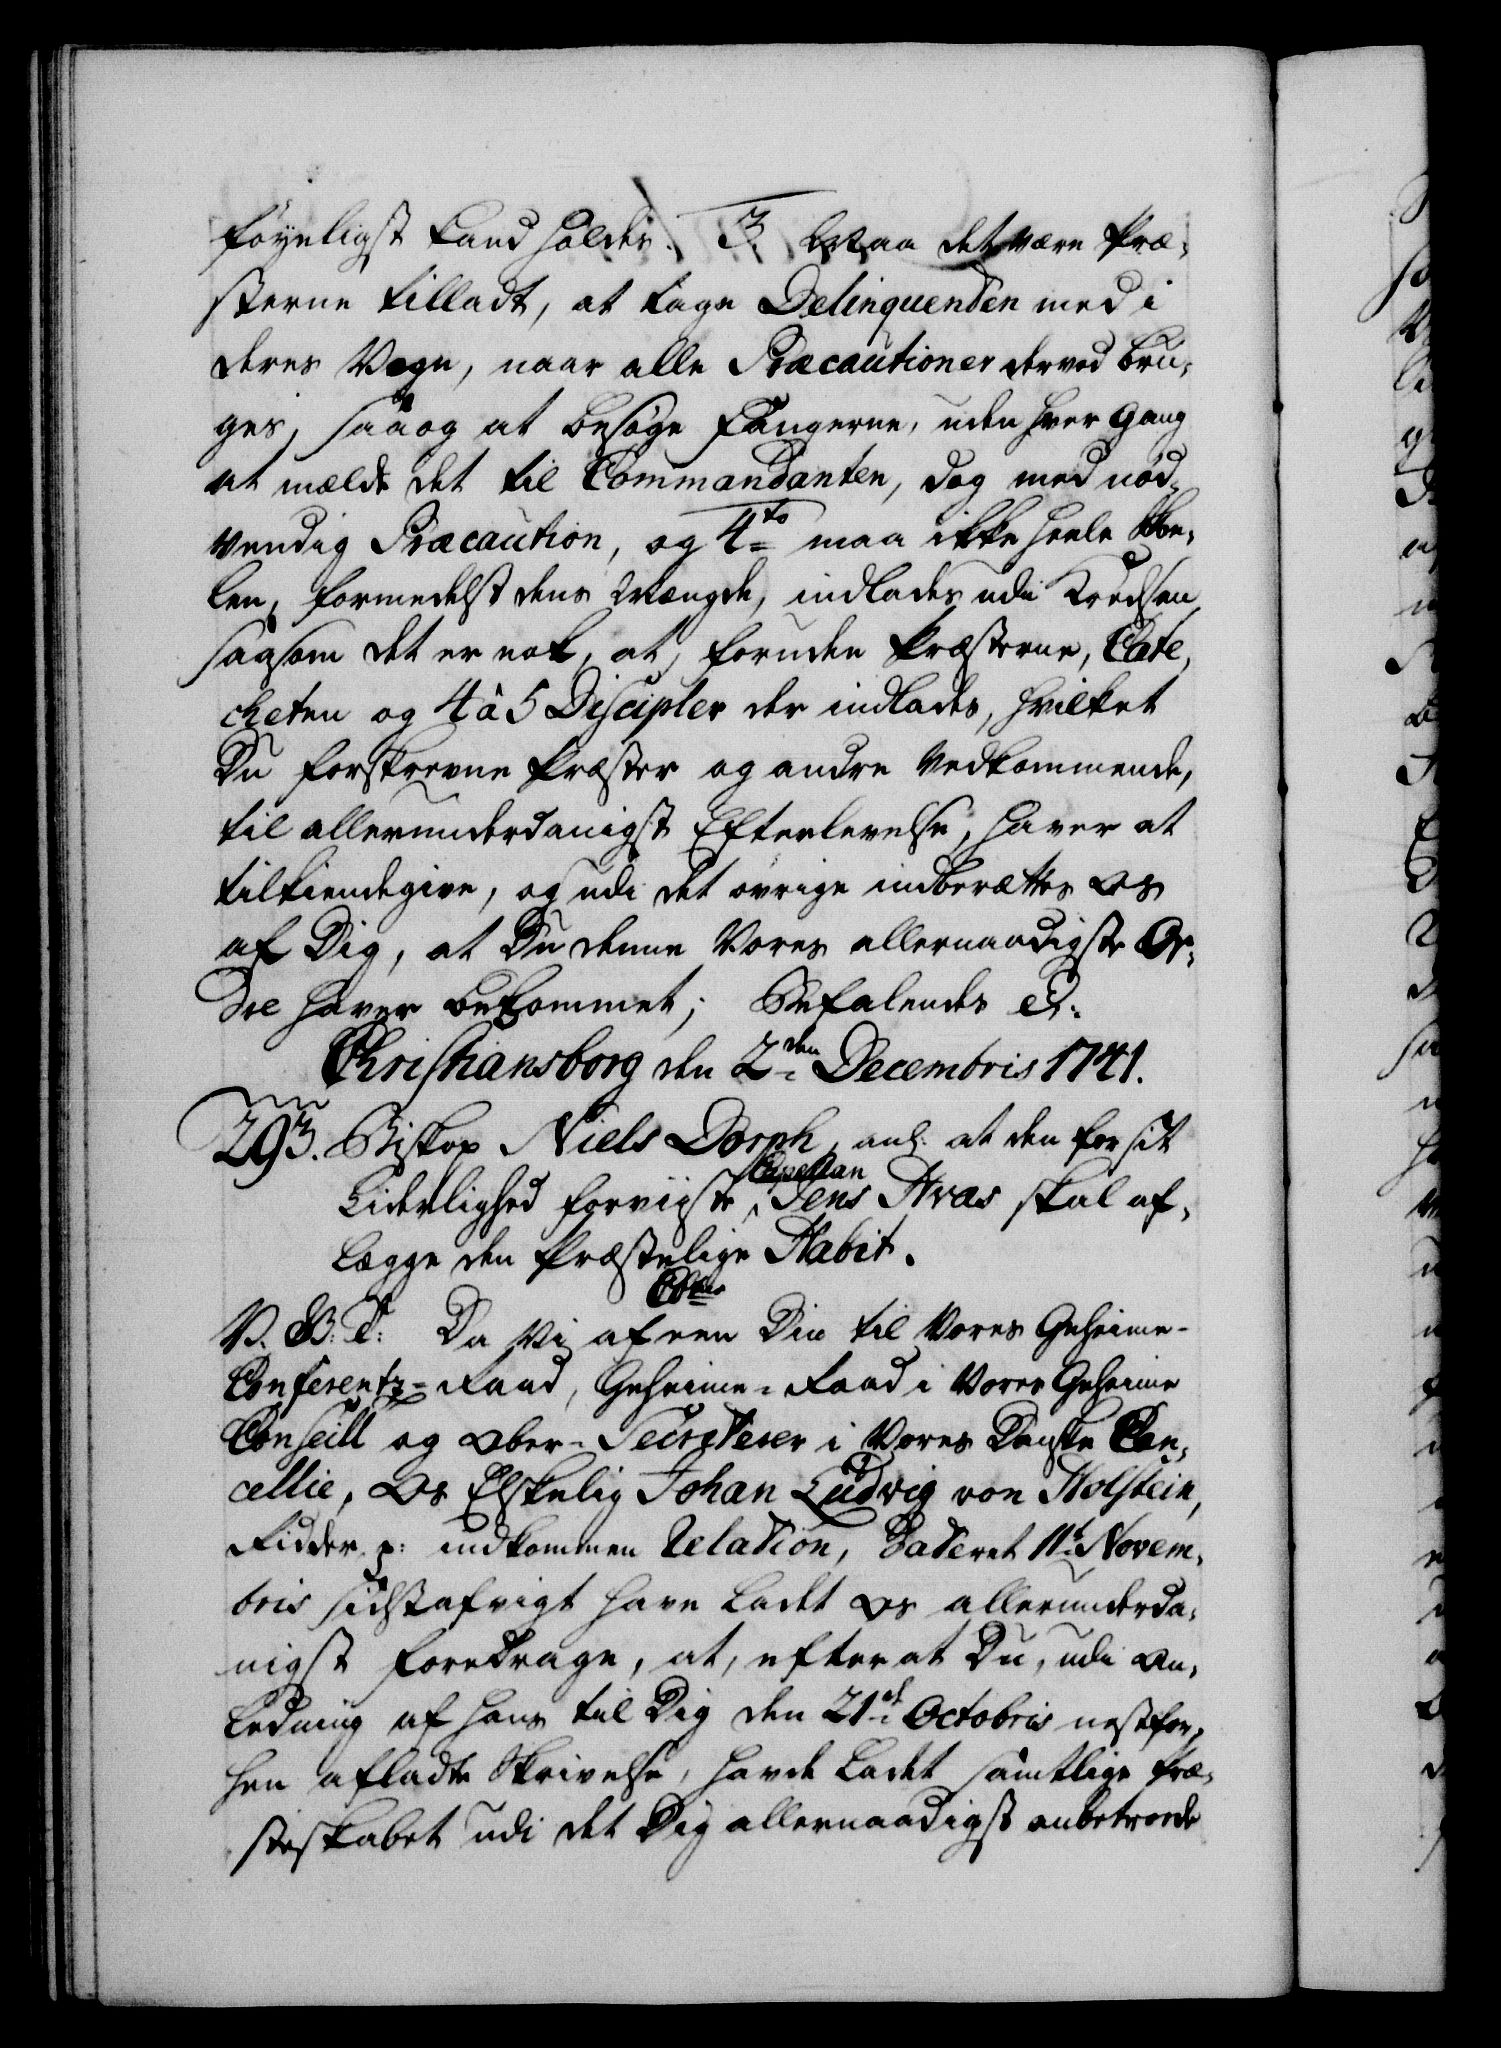 føyeligst kand holdes. 3. Maa det være Præ-
sterne tilladt, at tage Delinquenten med i
deres Vogn, naar alle Præcautioner derved bru-
ges, saa og at besøge Fangerne, uden hver Gang
at melde det til Commandanten, dog med nød-
vendig Præcaution, og 4to maa ikke heele Sko-
len, formedelst dens Mængde, indlades udi Kredsen,
saasom det er nok, at, foruden Præsterne, Cate-
cheten og 4 â 5 Discipler der indlades, hvilket
Du forskrevne Præster og andre Vedkommende,
til allerunderdanigst Efterlevelse, haver at
tilkiendegive, og udi det øvrige indberættes Os
af Dig, at Du denne Vores allernaadigste Or-
dre haver bekommet; Befalendes etc:
Christiansborg den 2den Decembris 1741.
293. Biskop Niels Dorph, anl: at den for sit
Liderlighed forviste Capellan Jens Hvas skal af-
lægge den Præstelige Habit.
V. G: T: Da Vi af een Din til Vores Geheime-
Conferentz-Raad, Geheime-Raad i Vores Geheime
Conseill og Ober-Secreterer i Vores Danske Can-
cellie, Os Elskelig Johan Ludvig von Holstein,
Ridder p: indkommen Relation, Dateret 11t Novem-
bris sidstafvigt have ladet Os allerunderda-
nigst foredrage, at, efterat Du, udi An-
ledning af hans til Dig den 21de Octobris nestfor-
hen afladte Skrivelse, havde ladet samtlige Præ-
steskabet udi det Dig allernaadigst anbetroede